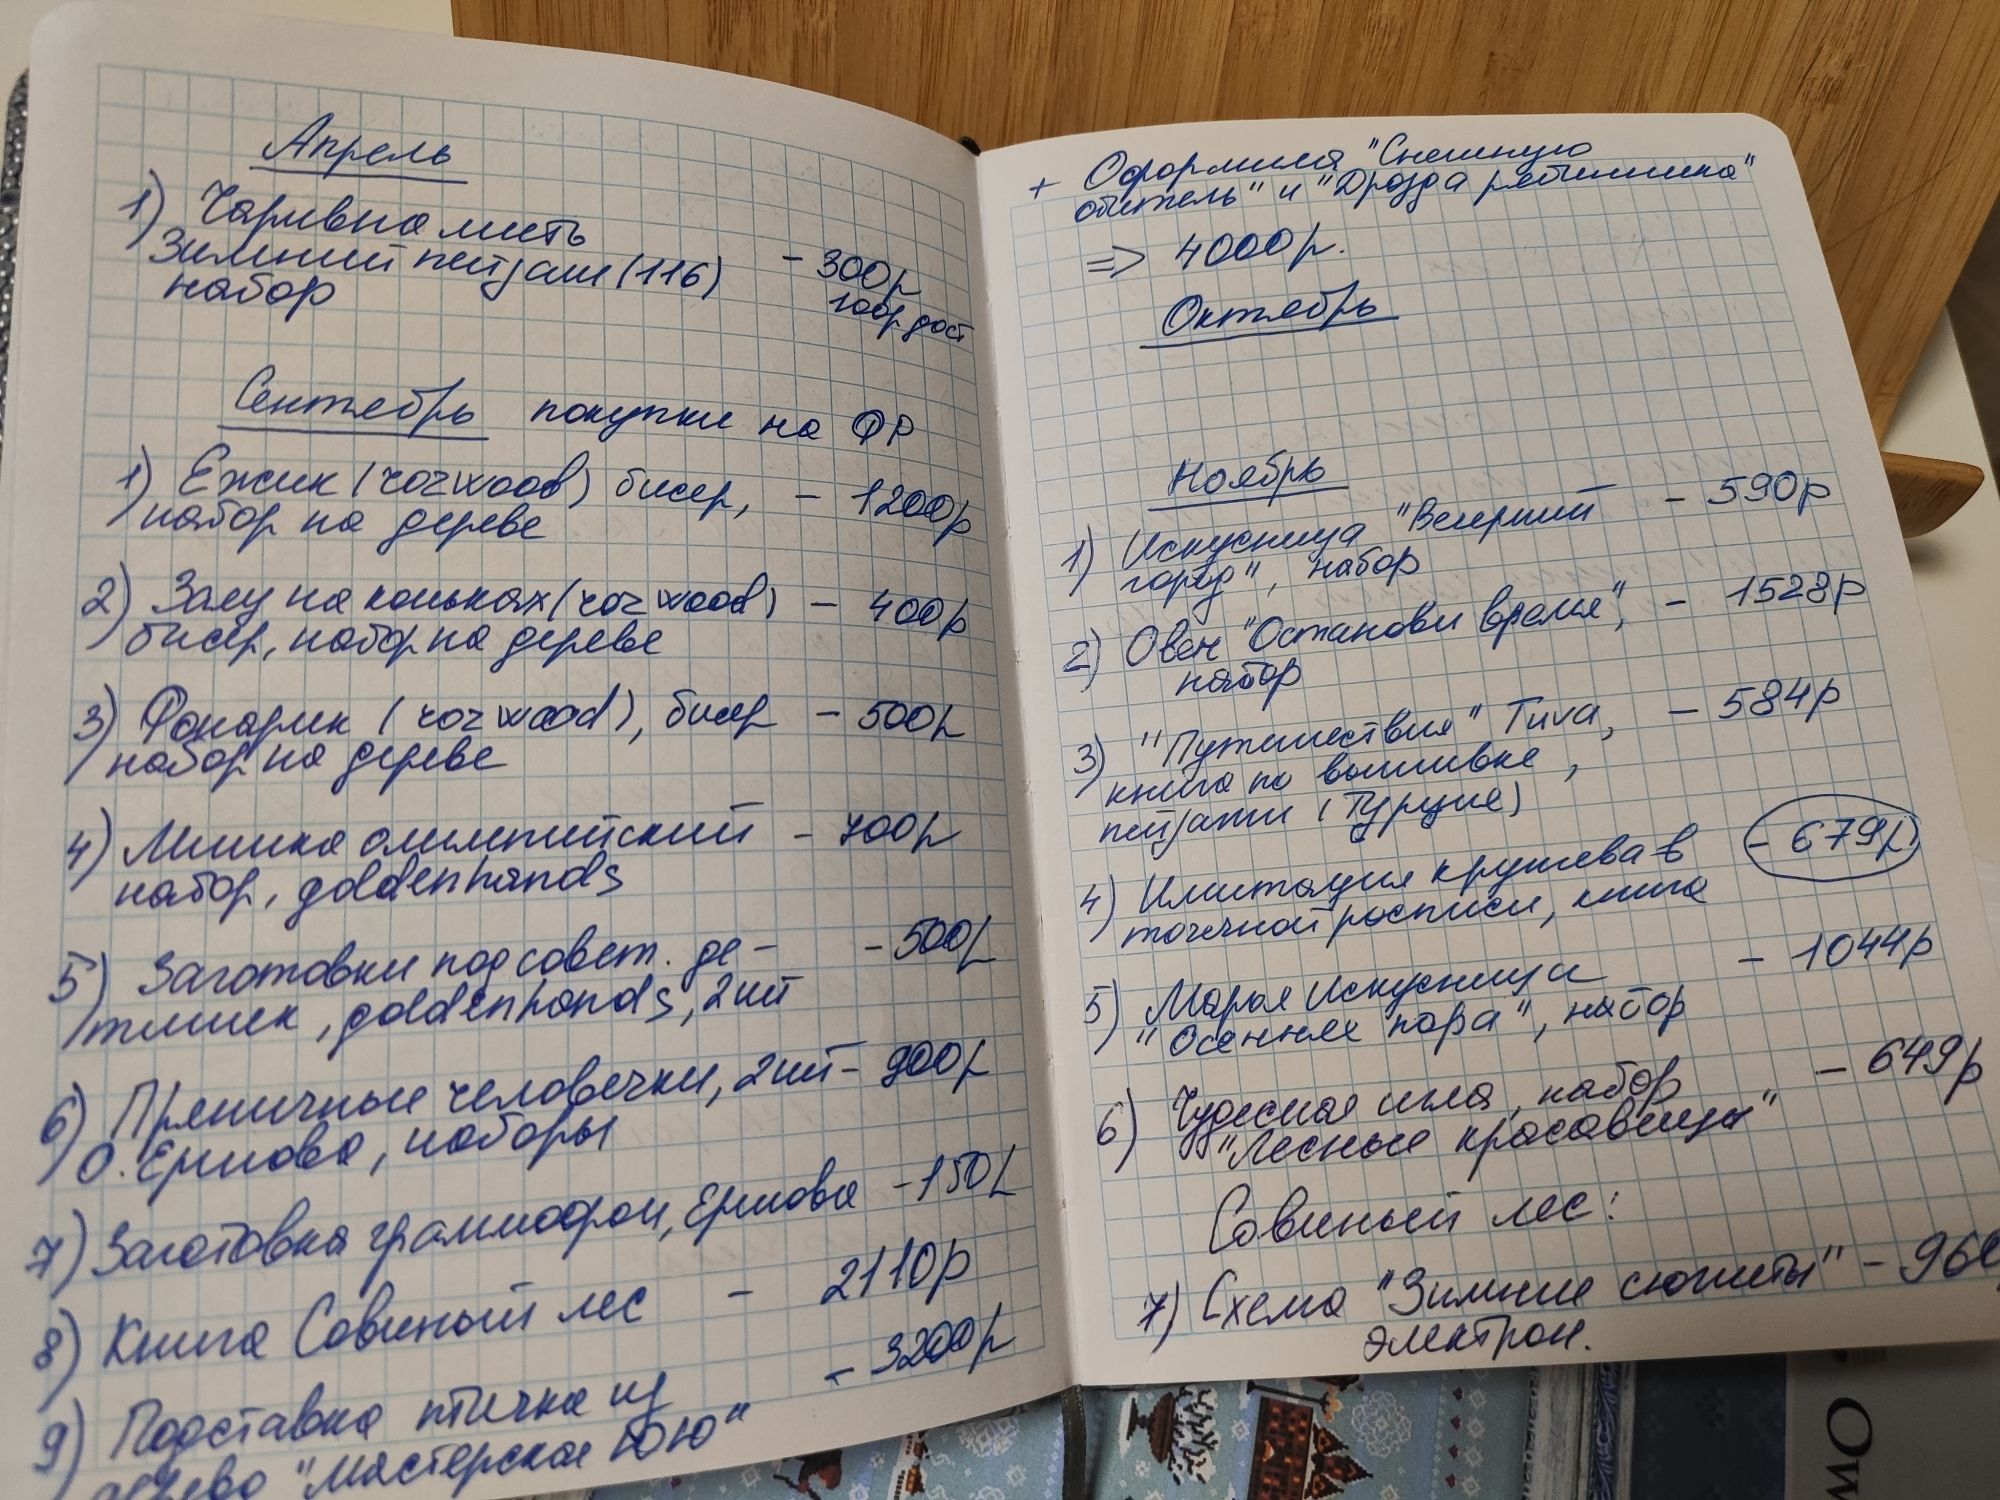 Апрель
1) Чарiвна мить
Зимний пейзаж (116) - 300р
набор
100р дост
Сентябрь покупки на ФР
1) Ежик (rozwood) бисер, - 1200р
набор на дереве
2) Заяц на коньках (rozwood) - 400р
бисер, набор на дереве
3) Фонарик (rozwood), бисер - 500р
набор на дереве
4) Мишка олимпийский - 700р
набор, goldenhands
5) Заготовки под совет. де- - 500р
тишек, goldenhands, 2шт
6) Пряничные человечки, 2шт - 900р
О. Ершова, наборы
7) Заготовка граммофон, Ершова - 150р
8) Книга Совиный лес - 2110р
9) Подставка птичка из - 3200р
дерево "Мастерская ЮЮ"
+ Оформила "Снежную
обитель" и "Дрозда рябинника"
=> 4000р.
Октябрь
Ноябрь
1) Искусница "Вечерний - 590р
город", набор
2) Овен "Останови время", - 1528р
набор
3) "Путешествия" Tuva, - 584р
книга по вышивке,
пейзажи (Турция)
4) Имитация кружева в - 679р
точечной росписи, книга
5) Марья Искусница - 1044р
"Осенняя пора", набор
6) Чудесная игла, набор - 649р
"Лесные красавицы"
Совиный лес:
7) Схема "Зимние сюжеты" - 960
электрон.
Ow